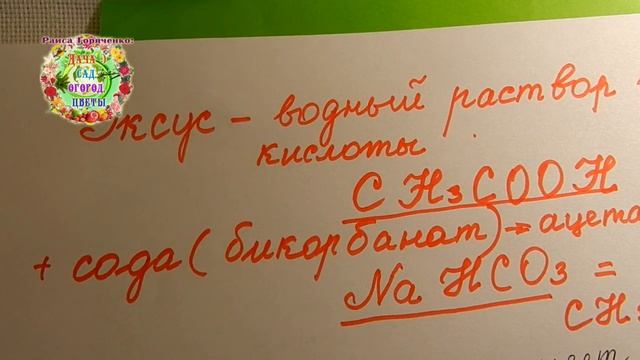 Раиса Горяченко:
ДАЧА
САД,
ОГОРОД,
ЦВЕТЫ
Уксус – водный раствор
кислоты
CH₃COOH
+ сода (бикарбанат) → ацета
NaHCO₃ =
CH₃